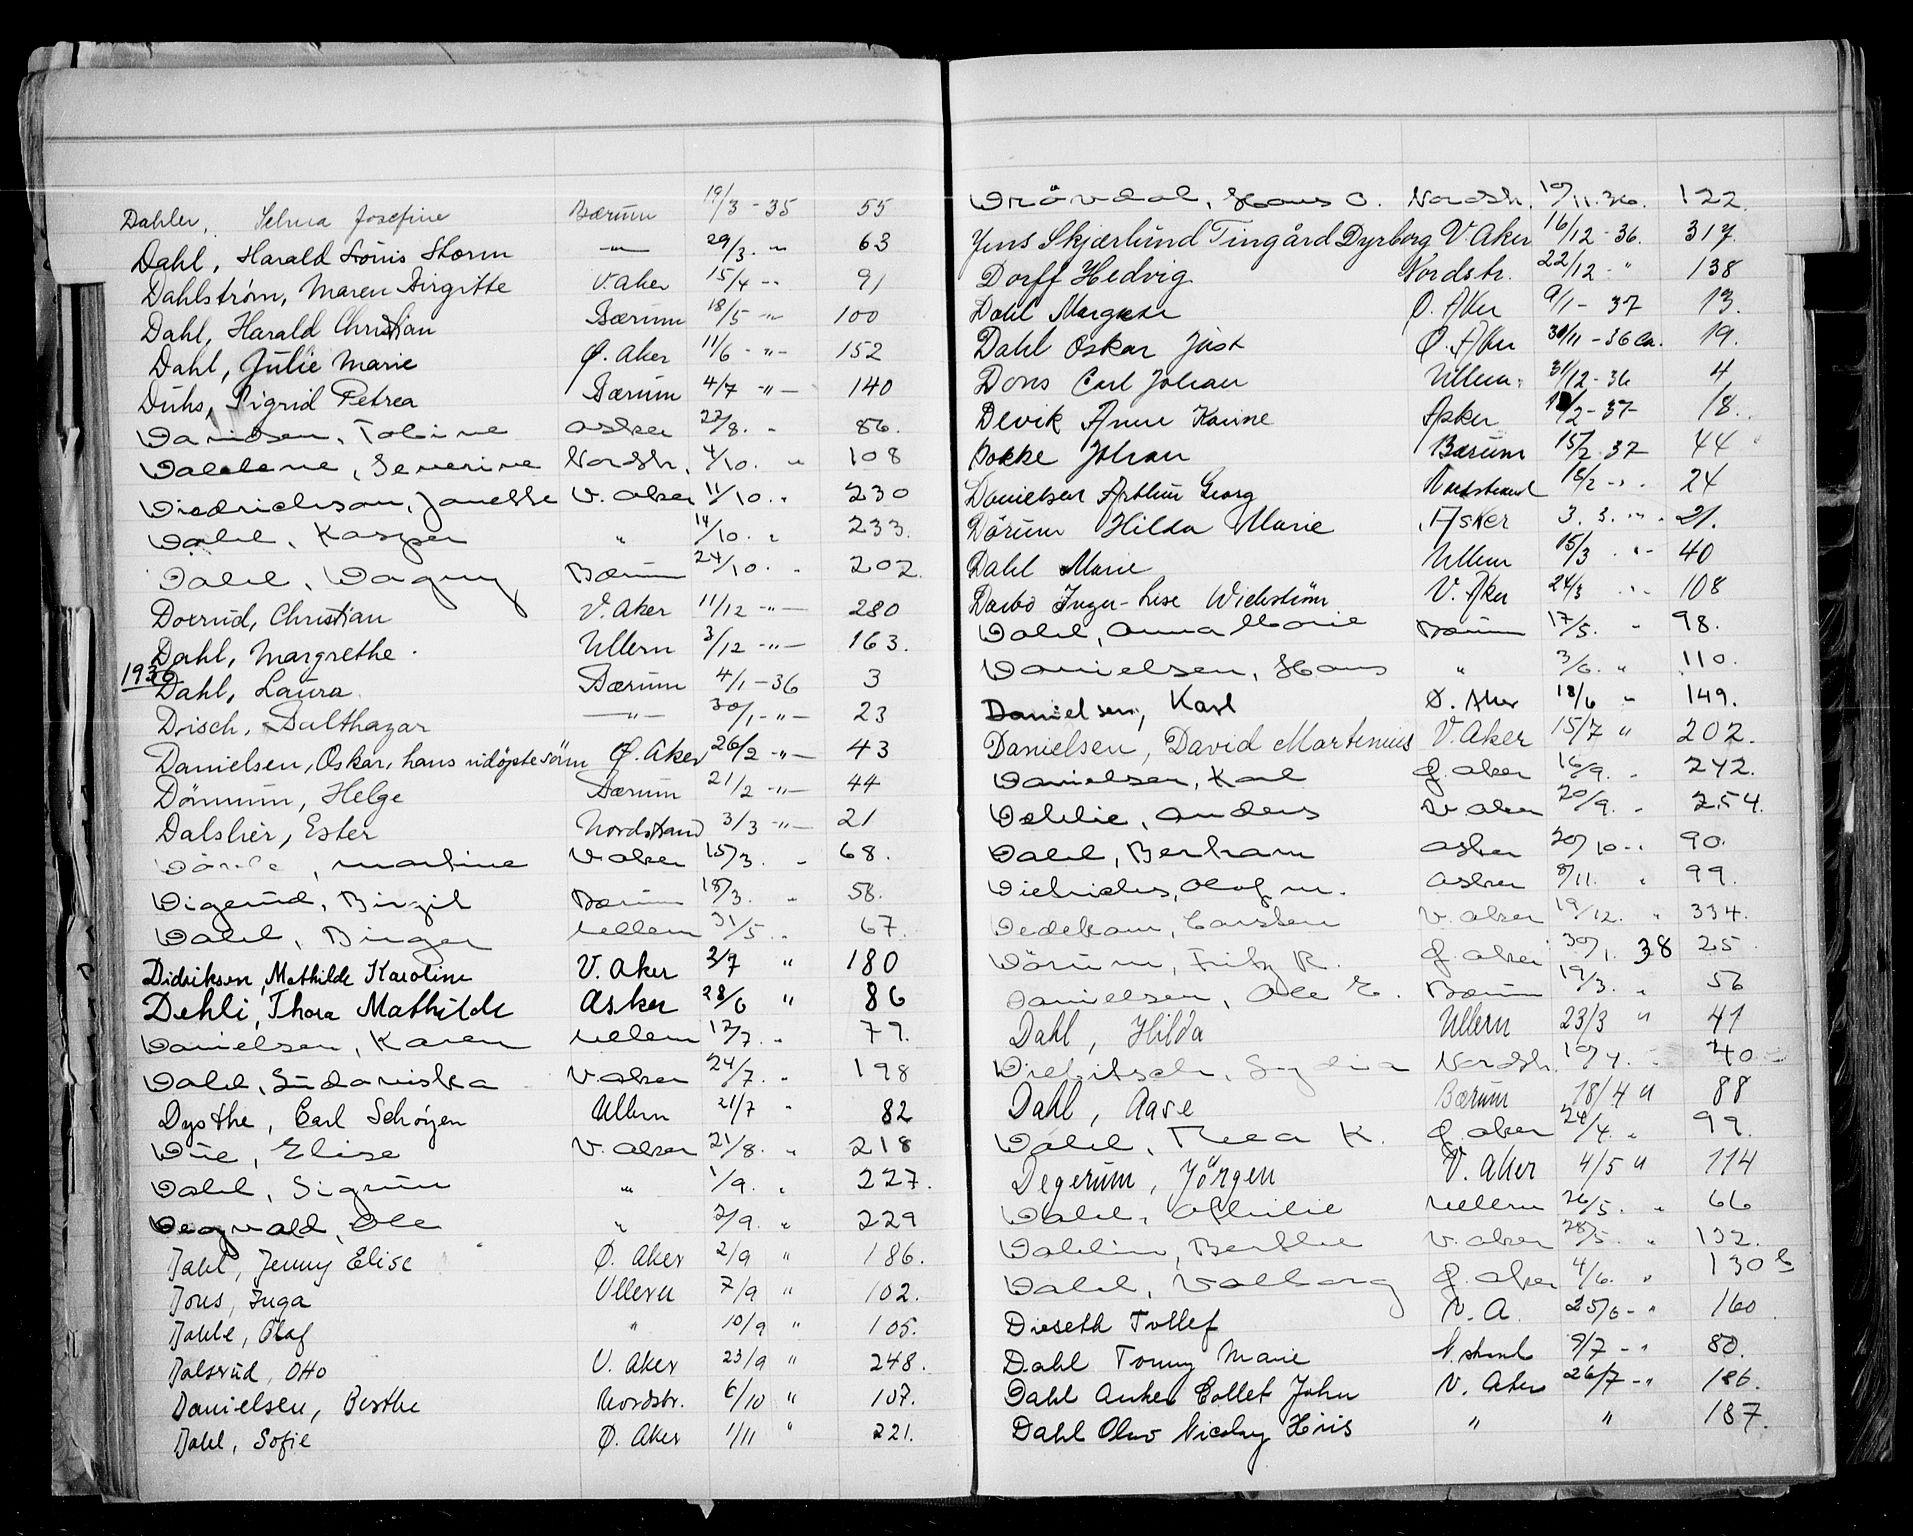 Dahler, Selma Josefine Bærum 19/3 - 35 55
Dahl, Harald Louis Storm —"— 29/3. " 63
Dahlstrøm, Maren Birgitte V. Aker 15/4 -" 91
Dahl, Harald Christian Bærum 18/5 -"- 100
Dahl, Julie Marie Ø. Aker 11/6 -"- 152
Duhs, Sigrid Petrea Bærum 4/7 -"- 140
Davidsen, Tobine Asker 27/8. " 86.
Severine Nordstr. 4/10. " 108
Diedrichson, Janette V. Aker 11/10. " 230
Dahl, Kasper " 14/10. " 233.
Dahl, Dagny Bærum 24/10. " 202.
Doerud, Christian V. Aker 11/12 -"- 280
Dahl, Margrethe. Ullern 3/12 -"- 163.
1936
Dahl, Laura. Bærum 4/1 - 36 3
Disch, Balthazar —"— 30/1 -"- 23
Danielsen, Oskar, hans udøpte sönn Ø. Aker 26/2 -"- 43
Dönnum, Helge Bærum 21/2 -"- 44
Dalslier, Ester Nordstrand 3/3 -"- 21
Martine V. Aker 15/3. " 68.
Digerud, Birgit Bærum 18/3. " 58.
Dahl, Birger Ullern 31/5 " 67.
Didriksen, Mathilde Karoline V. Aker 3/7 " 180
Dehli, Thora Mathilde Asker 28/6 " 86
Danielsen, Karen Ullern 12/7. " 77.
Dahl, Ludoviska V. Aker 24/7. " 198
Dysthe, Carl Schöyen Ullern 21/7 " 82
Due, Elise V. Aker 21/8. " 218
Dahl, Sigrun " 1/9. " 227.
Degvald, Ole " 2/9. " 229
Dahl, Jenny Elise Ø. Aker 2/9 " 186.
Dons, Inga Ullern 7/9 " 102.
Dahle, Olaf " 10/9 " 105.
Dalsrud, Otto V. Aker 23/9 " 248.
Danielsen, Berthe Nordstr. 6/10 " 107.
Dahl, Sofie Ø. Aker 1/11 " 221.
Drövdal, Hans O. Nordstr. 10/11. 36. 122.
Jens Skjærlund Tingård Dyrborg V. Aker 16/12 - 36. 317.
Dorff Hedvig Nordstr. 22/12 - " 138
Dahl Margrete Ø. Aker 9/1 - 37 13.
Dahl Oskar Just Ø. Aker 30/11 - 36 ca. 19.
Dons Carl Johan Ullern. 31/12 - 36 4
Devik Anne Karine Asker /2 - 37 18.
Dokke Johan Bærum 15/2 37 44
Danielsen Arthur Georg Nordstrand 16/2 - " 24
Dörum Hilda Marie Asker 3. 3. " 21.
Dahl Marie Ullern 15/3 . " 40
Inger-Lise Wichstrøm V. Aker 24/3 . " 108
Dahl, Anna Marie Bærum 17/5. " 98.
Danielsen, Hans " 3/6. " 110.
Danielsen, Karl Ø. Aker 18/6 " 149.
Danielsen, David Martinius V. Aker 15/7 " 202.
Danielsen, Karl Ø. Aker 16/9. " 242.
Dehlie, Anders V. Aker 20/9. " 254.
Dahl, Bertram Asker 20/10 - " 90.
Dietrichs, Olaf M. Asker 8/11. " 99.
Dedekam, Carsten V. Aker 19/12. " 334.
Dörum, Fritz R. Ø. Aker 30/1. 38 25
Danielsen, Ole E. Bærum 19/3. " 56
Dahl, Hilda Ullern 23/3 " 41
Diebitsch, Nordstr. 19/4. " 40
Dahl, Aase Bærum 18/4 " 88
Dahl, Thea K. Ø. Aker 24/4. " 99.
Degerum, Jörgen V. Aker 4/5 " 114
Dahl, Othilie Ullern 26/5. " 66
Dahlin, Berthe V. Aker 28/5. " 132.
Dahl, Valborg Ø. Aker 4/6. " 130 b
Diseth Tollef V. A. 25/6 - " 160
Dahl Tonny Marie N.strand 9/7 - " 80.
Dahl Anker Collet John V. Aker 26/7 - " 186.
Dahl Olav Nicolay Hiis " " 187.